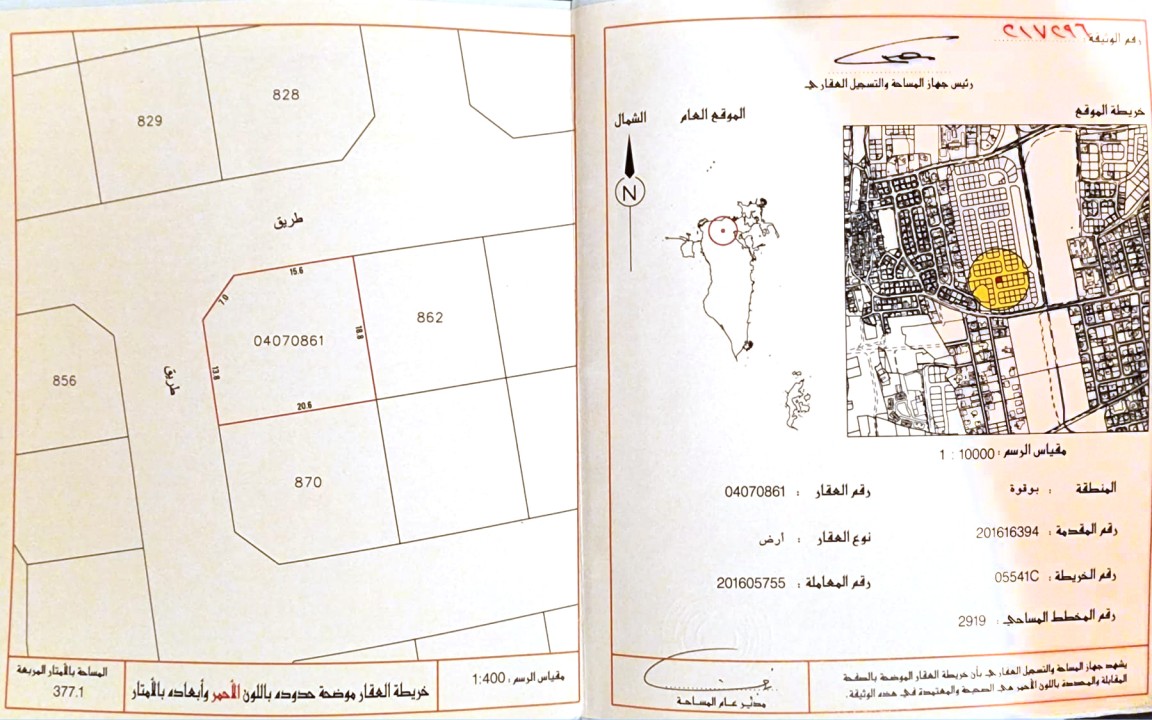 رقم الوثيقة: ٢١٧٢٩٦
رئيس جهاز المساحة والتسجيل العقاري
خريطة الموقع
الموقع العام
الشمال
N
مقياس الرسم : 10000 : 1
المنطقة : بوقوة
رقم العقار : 04070861
رقم المقدمة : 201616394
نوع العقار : أرض
رقم الخريطة : 05541C
رقم المعاملة : 201605755
رقم المخطط المساحي : 2919
يشهد جهاز المساحة والتسجيل العقاري بأن خريطة العقار الموضحة بالصفحة
المقابلة والمحددة باللون الأحمر هي الصحيحة والمعتمدة في هذه الوثيقة.
مدير عام المساحة
828
829
طريق
15.6
7.0
04070861
18.8
862
13.8
856
طريق
20.6
870
مقياس الرسم : 1:400
خريطة العقار موضحة حدوده باللون الأحمر وأبعاده بالأمتار
المساحة بالأمتار المربعة
377.1